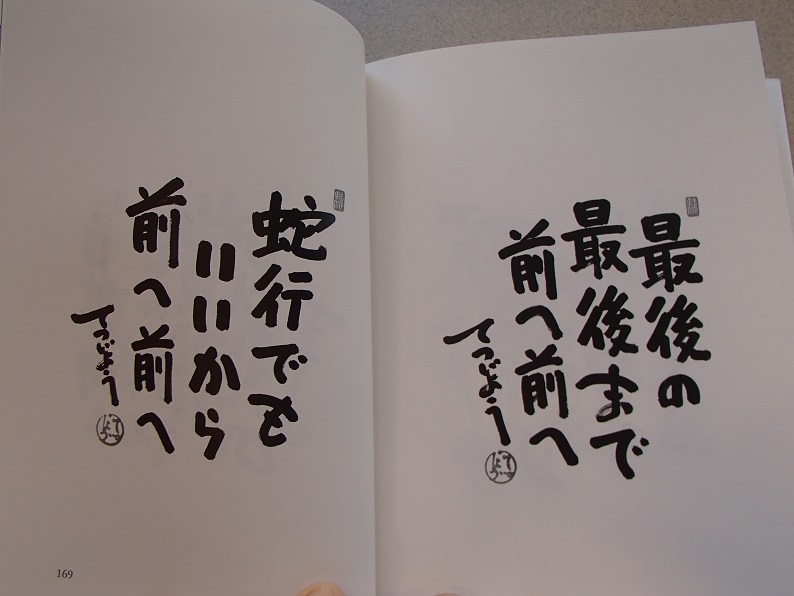 最後の
最後まで
前へ前へ
てつじょう
蛇行でも
いいから
前へ前へ
てつじょう
169